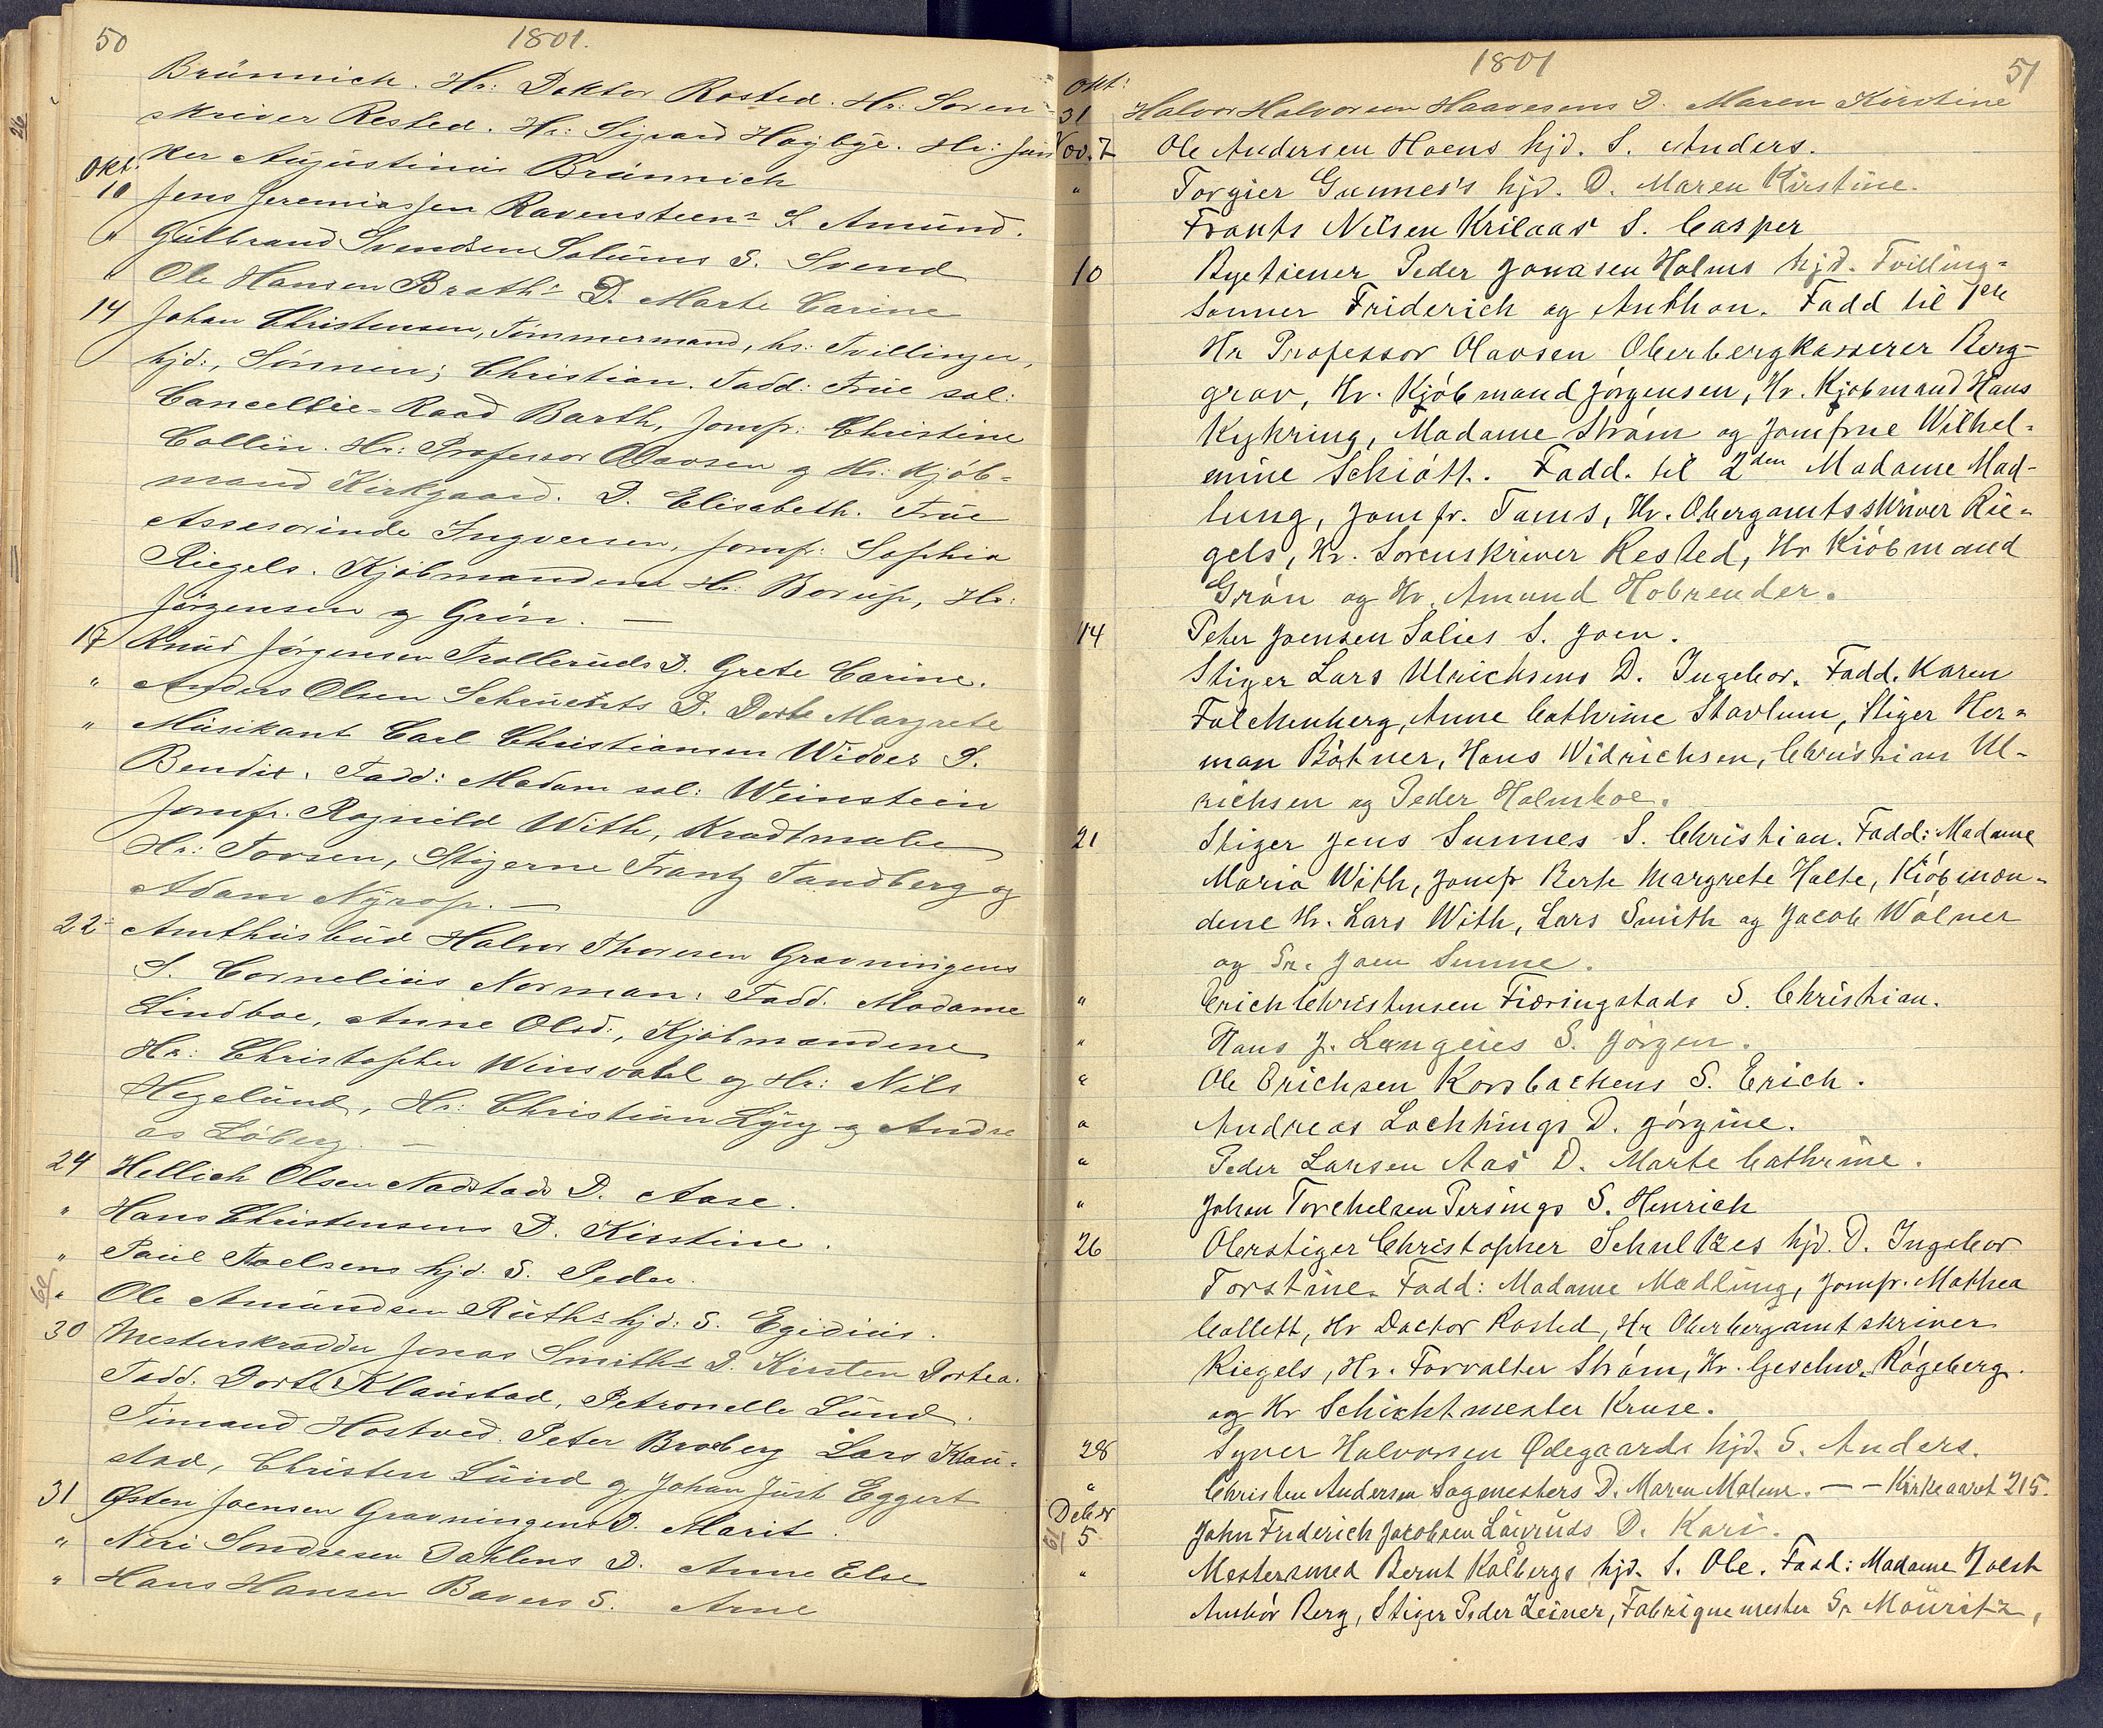 50
1801.
Brünnich. Hr: Doktor Rosted. Hr: Soren-
skriver Rested. Hr: Sigvard Høgbye. Hr: Jun
ker Augustinus Brünnich
Okt.
10 Jens Jeremiassen Ravensteens S. Amund.
" Gulbrand Svendsen Solums S. Svend
" Ole Hansen Braths D. Marte Carine
14 Johan Christensen, Tømmermand, hs: Tvillinger,
hjd:, Sønnen; Christian. Fadd: Frue sal:
Cancellie-Raad Barth, Jomfr: Christine
Collin. Hr: Professor Olavsen og Hr: Kjöb-
mand Kirkgaard. D. Elisabeth. Frue
Assesorinde Ingversen, Jomfr: Sophia
Riegels. Kjöbmandene Hr: Borup, Hr:
Jörgensen og Grön. —
17 Knud Jörgensen Trolleruds D. Grete Carine.
" Anders Olsen Schuerts D. Dorte Margrete
" Musikant Carl Christiansen Widdes S.
Bendix. Fadd: Madam sal: Weinstein
Jomfr. Ragnild With, Kradtmaler
Hr: Torsen, Stigerne Frantz Tandberg og
Adam Nyrop. —
22 Amthusbud Halvor Thoresen Gravningens
S. Cornelius Norman: Fadd. Madame
Lindboe, Anne Olsd:, Kjöbmændene
Hr: Christopher Winsvold og Hr: Nils
Hegelund, Hr: Christian Lyng og Andre
as Löberg. —
24 Hellich Olsen Nadstads D. Aase.
" Hans Christensens D. Kirstine.
" Paul Poelsens hjd. S. Peder.
" Ole Amundsen Ruths hjd: S. Egidius.
30 Mesterskrædder Jonas Smiths D. Kirsten Dortea.
Fadd. Dorthe Klaustad, Petronelle Lund.
Timand Hostved. Peter Broeberg Lars Klau-
stad, Christen Lund og Johan Just Eggert
31 Østen Joensen Gravningens D. Marit.
" Neri Sondresen Dahlens D. Anne Else
" Hans Hansen Bavers S. Arne
1801
51
Okt:
31 Halvor Halvorsen Haavesens D. Maren Kirstine
Nov. 7 Ole Andersen Hoens hjd. S. Anders.
" Torgier Gunnes's hjd. D. Maren Kirstine.
Frants Nilsen Krilaas' S. Casper
10 Byetiener Peder Jonasen Holms hjd. Tvilling-
sønner Friderich og Anthon. Fadd til 1ste
Hr Professor Olavsen Oberbergkasserer Berg-
grav, Hr. Kjöbmand Jørgensen, Hr. Kjøbmand Hans
Kyhring, Madame Strøm og Jomfrue Wilhel-
mine Schiøtt. Fadd. til 2den Madame Mad-
lung, Jomfr. Tams, Hr. Obergamtsskriver Rie-
gels, Hr. Sorenskriver Rested, Hr Kiöbmand
Grön og Hr. Amund Hobrender.
14 Peter Joensen Solies S. Joen.
Stiger Lars Ulrichsens D. Ingebor. Fadd. Karen
Falchenberg, Anne Cathrine Stavlum, Stiger Her-
man Bötner, Hans Widrichsen, Christian Ul-
richsen og Peder Holmboe.
21 Stiger Jens Sunnes S. Christian. Fadd: Madame
Maria With, Jomfr Berte Margrete Halte, Kiöbmæn-
dene Hr. Lars With, Lars Smith og Jacob Wölner
og Sr. Joen Sunne.
" Erich Christensen Fiæringstads S. Christian.
" Hans J. Langeies S. Jörgen.
" Ole Erichsen Korsbachens S. Erich.
" Andreas Lochtings D. Jörgine.
" Peder Larsen Aas' D. Marte Cathrine.
" Johan Torchelsen Persings S. Henrich
26 Oberstiger Christopher Schultzes hjd. D. Ingebor
Torstine. Fadd: Madame Madlung, Jomfr. Mathea
Collett, Hr Doctor Rosted, Hr Oberbergamtskriver
Riegels, Hr. Forvalter Strøm, Hr. Geschw. Rögeberg.
og Hr Schichtmester Kruse.
28 Syver Halvorsen Ødegaards hjd. S. Anders.
" Christen Andersen Sagmesters D. Maren Malene. — — Kirkeaaret 215.
Debr
5 John Friderich Jacobsen Lauruds D. Kari.
" Mestersmed Bernt Kolbergs hjd. S. Ole. Fadd: Madame Holst
Anbör Berg, Stiger Peder Zeiner, Fabriquemester Sr Mouritz,